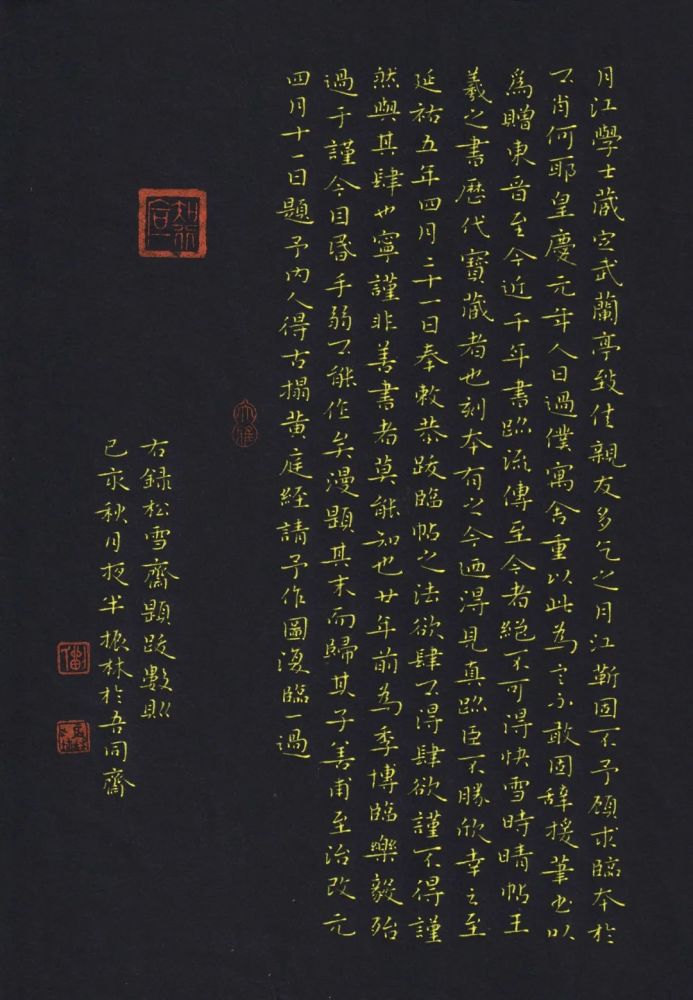 月江學士藏定武蘭亭致佳親友多乞之月江靳固不予顧求臨本於
不肖何耶皇慶元年人日過僕寓舍重以此為言不敢固辭援筆書以
為贈東晉至今近千年書跡流傳至今者絕不可得快雪時晴帖王
羲之書歷代寶藏者也刻本有之今迺得見真跡臣不勝欣幸之至
延祐五年四月二十一日奉敕恭跋臨帖之法欲肆不得肆欲謹不得謹
然與其肆也寧謹非善書者莫能知也廿年前為季博臨樂毅殆
過于謹今目昏手弱不能作矣漫題其末而歸其子善甫至治改元
四月十一日題予內人得古搨黃庭經請予作圖復臨一過
右錄松雪齋題跋數則
己亥秋月夜半振林於吾同齋
知行合一
大雅
劉